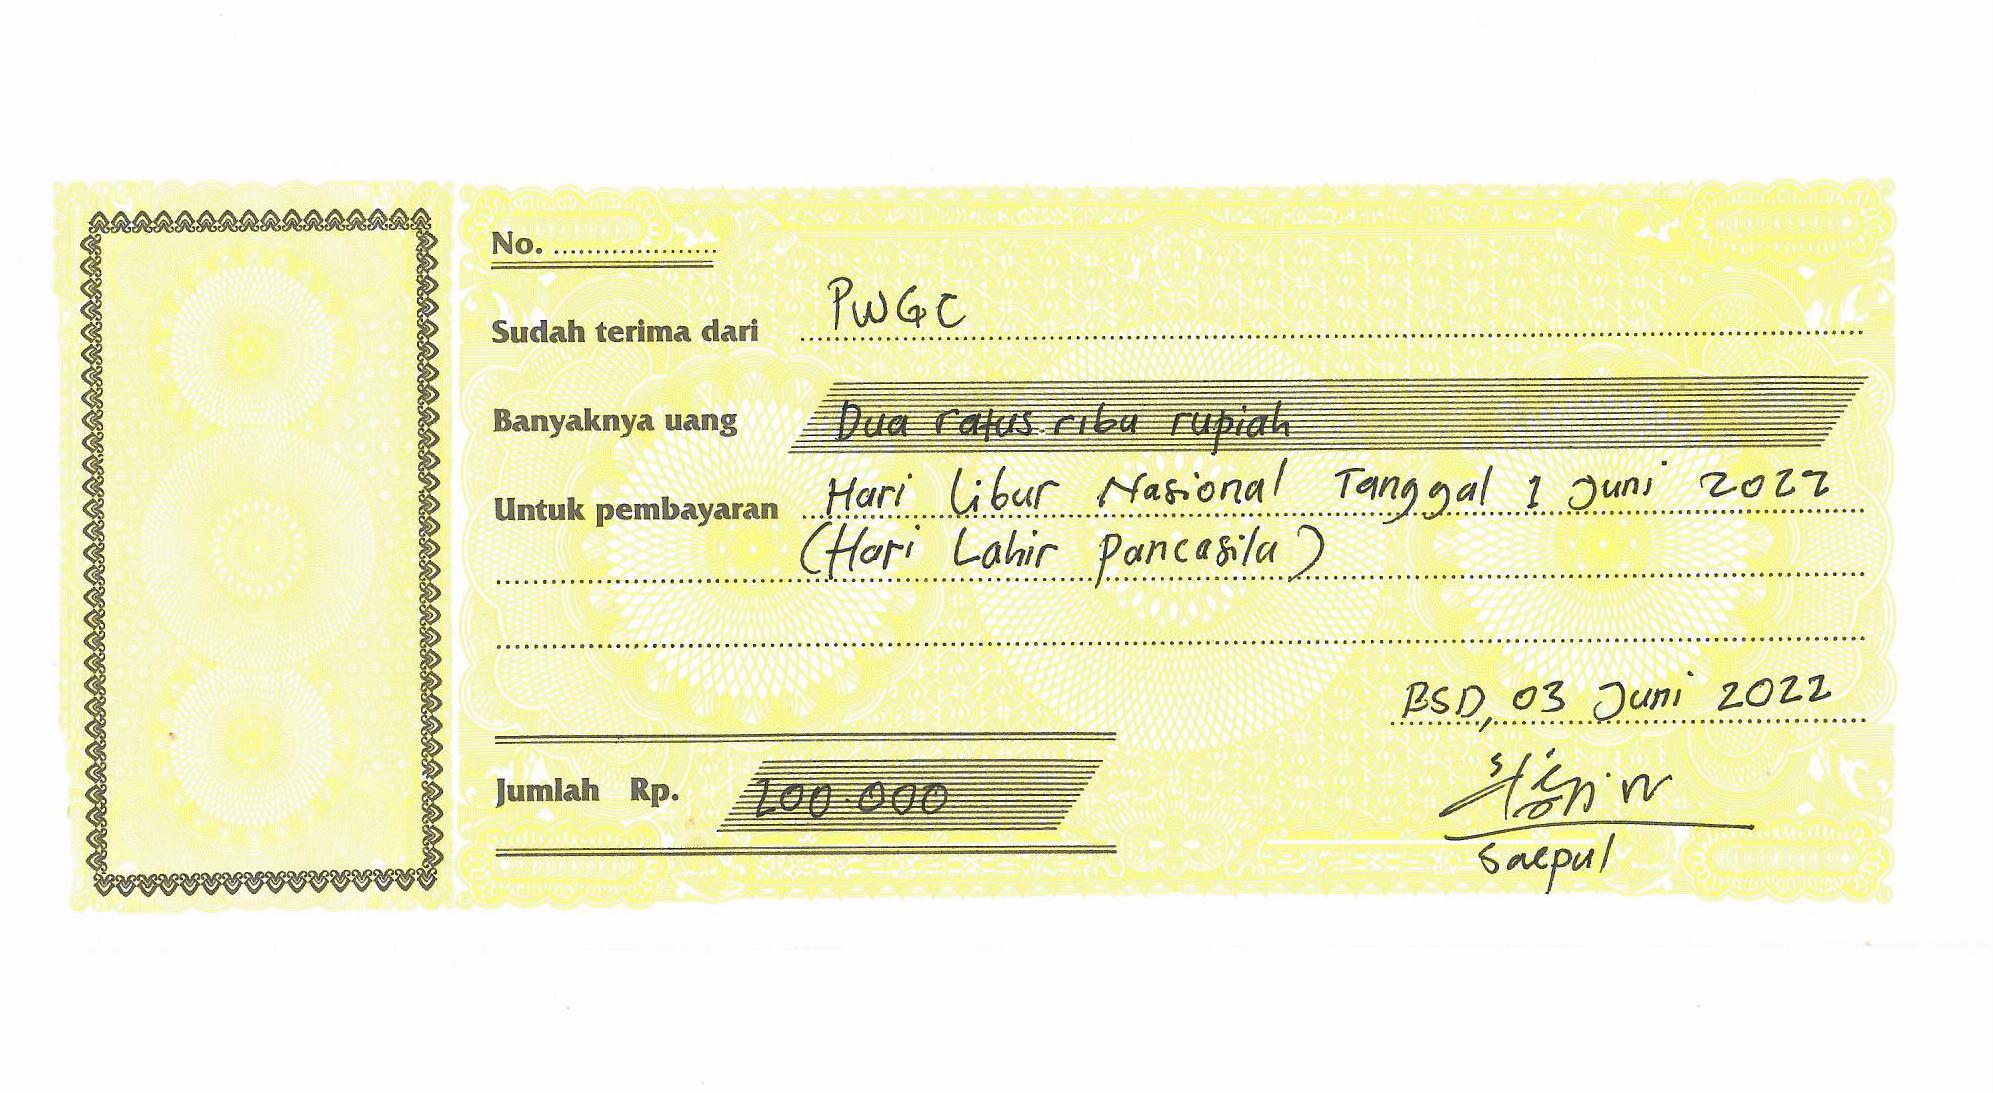 No. ..................
Sudah terima dari PWGC
Banyaknya uang Dua ratus ribu rupiah
Untuk pembayaran Hari Libur Nasional Tanggal 1 Juni 2022
(Hari Lahir Pancasila)
BSD, 03 Juni 2022
Jumlah Rp. 200.000
Saepul